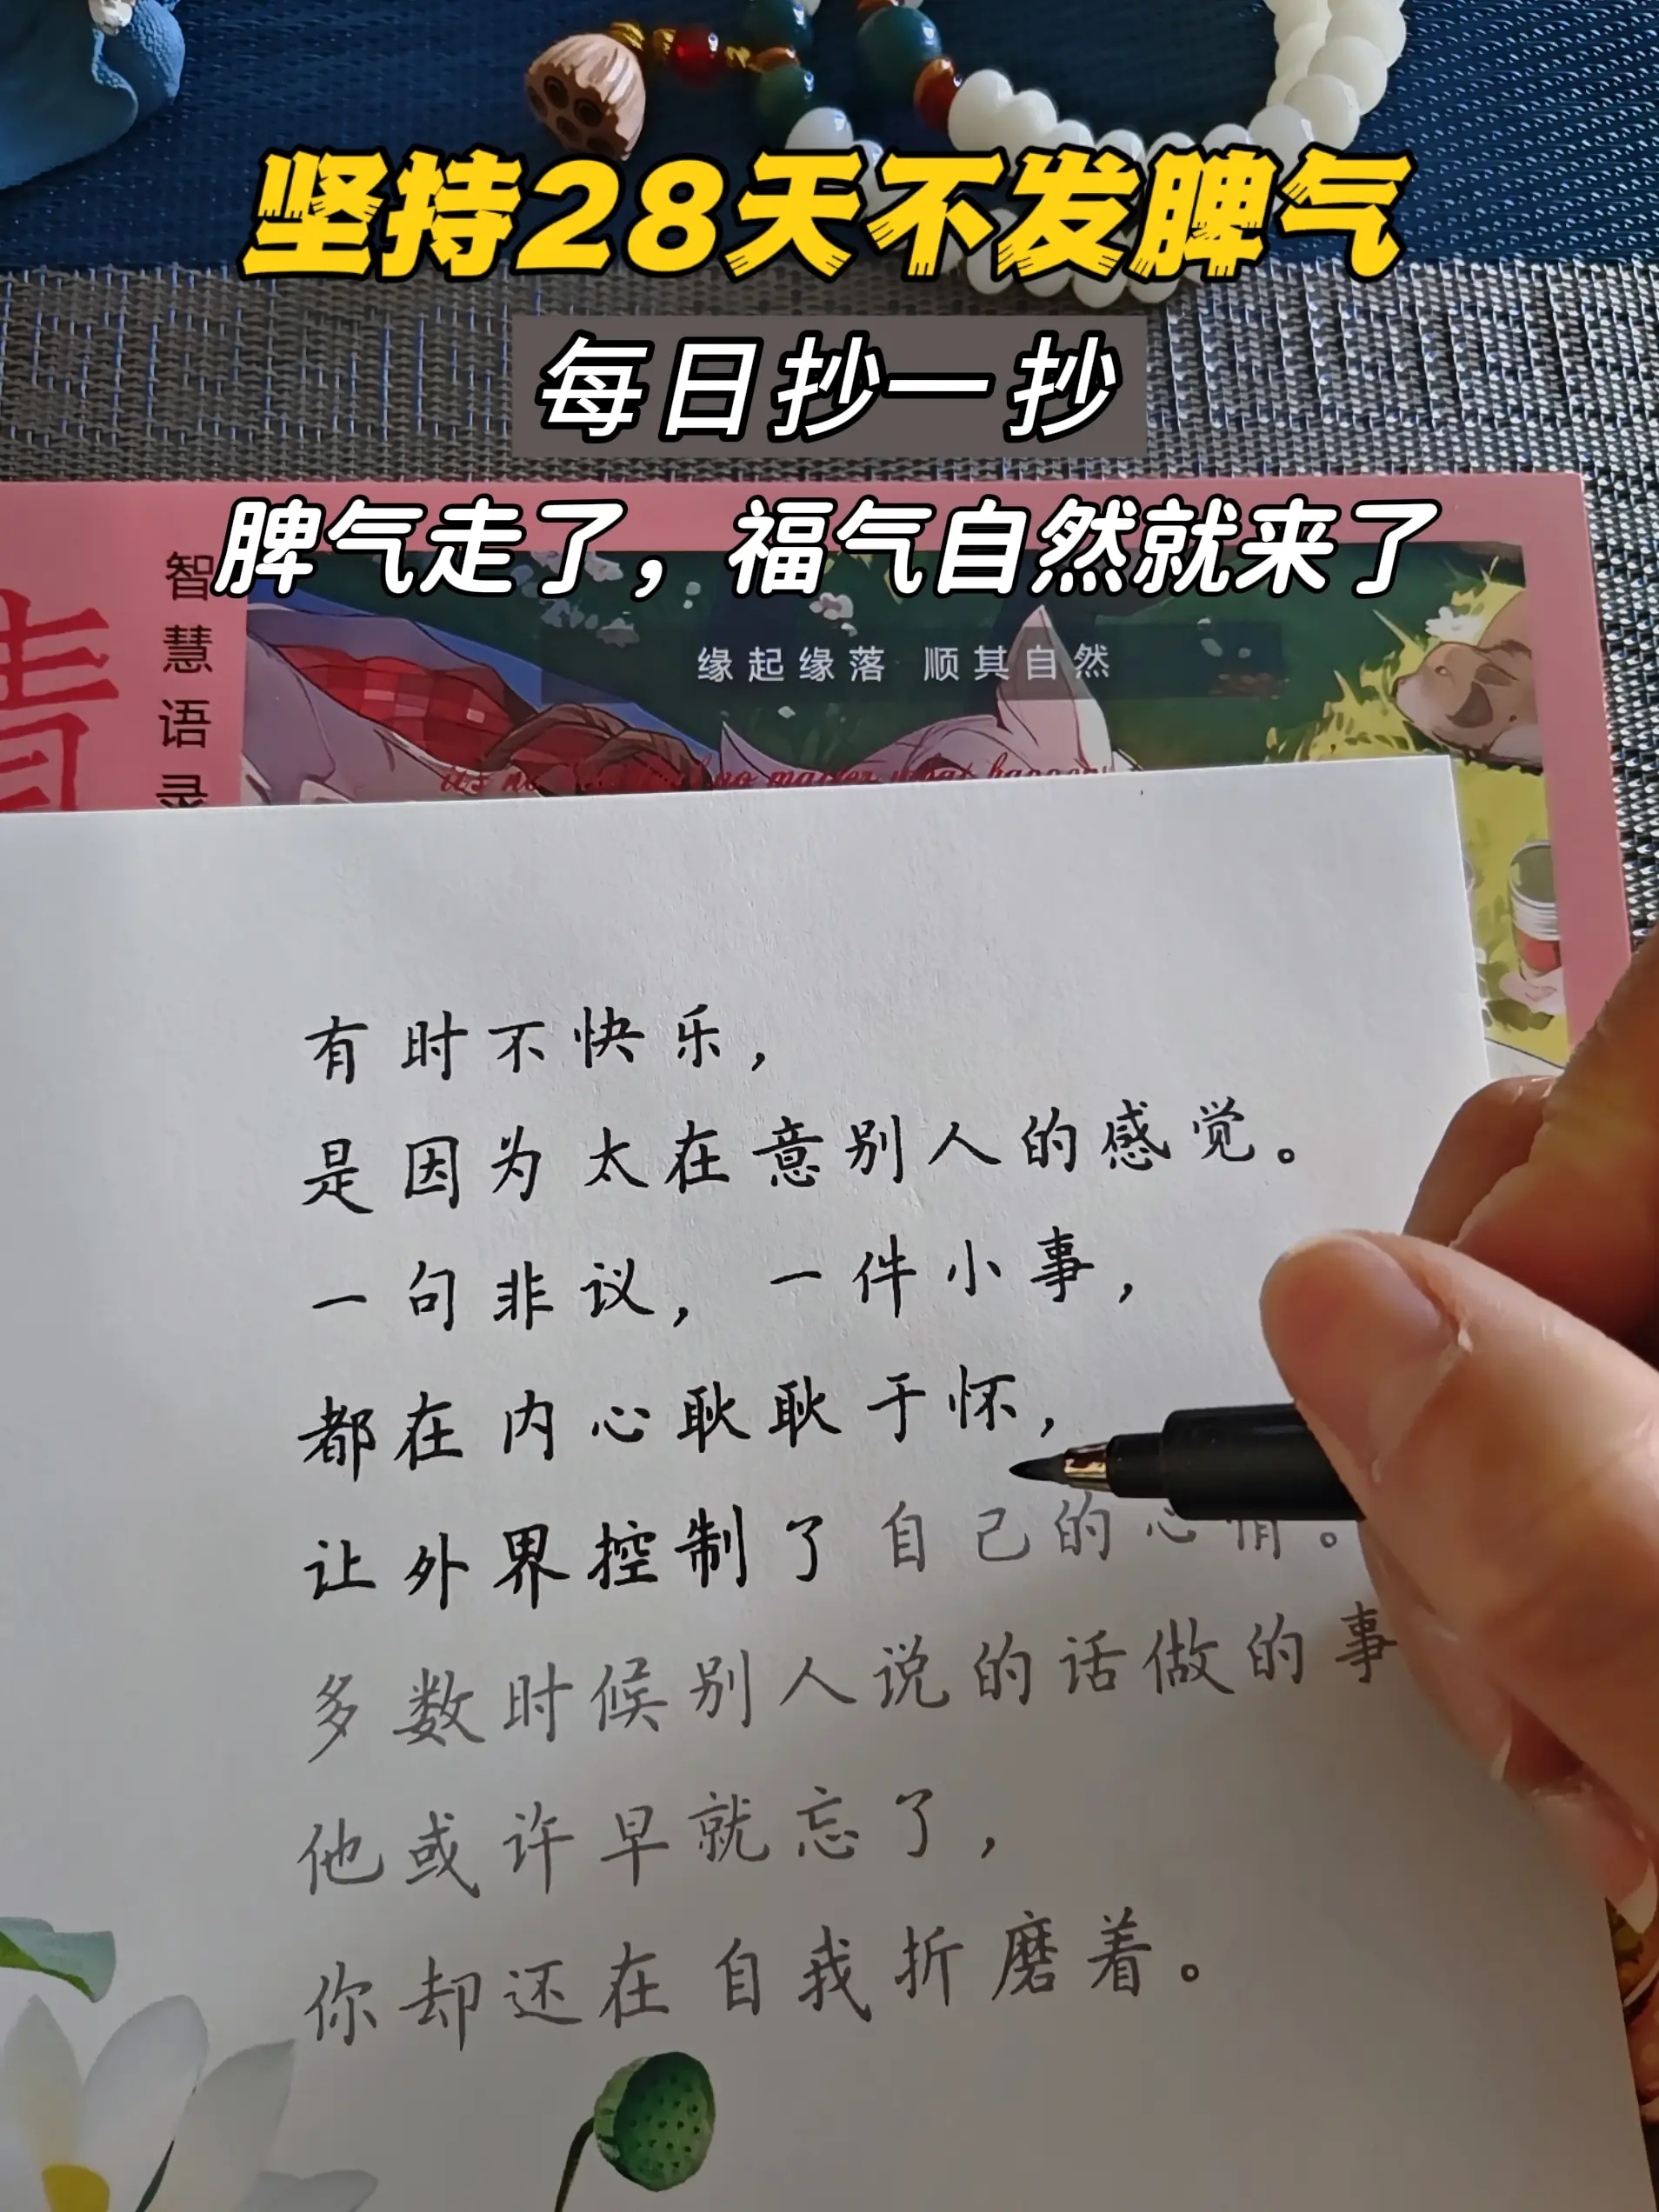 坚持28天不发脾气
每日抄一抄
脾气走了，福气自然就来了
智慧语录
缘起缘落 顺其自然
有时不快乐，
是因为太在意别人的感觉。
一句非议，一件小事，
都在内心耿耿于怀，
让外界控制了自己的心情。
多数时候别人说的话做的事
他或许早就忘了，
你却还在自我折磨着。